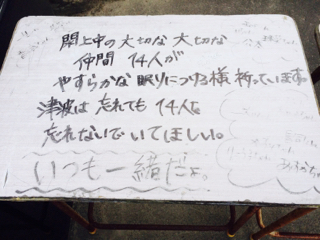 閖上中の大切な大切な
仲間 14人が
やすらかな眠りにつける様 祈っています。
津波は忘れても 14人を
忘れないでいてほしい。
いつも一緒だよ。